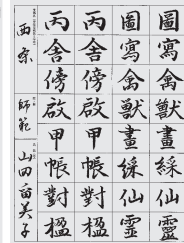 圖寫禽獸畫綵仙靈
圖寫禽獸畫綵仙靈
丙舍傍啟甲帳對楹
丙舍傍啟甲帳對楹
師範
山田美子